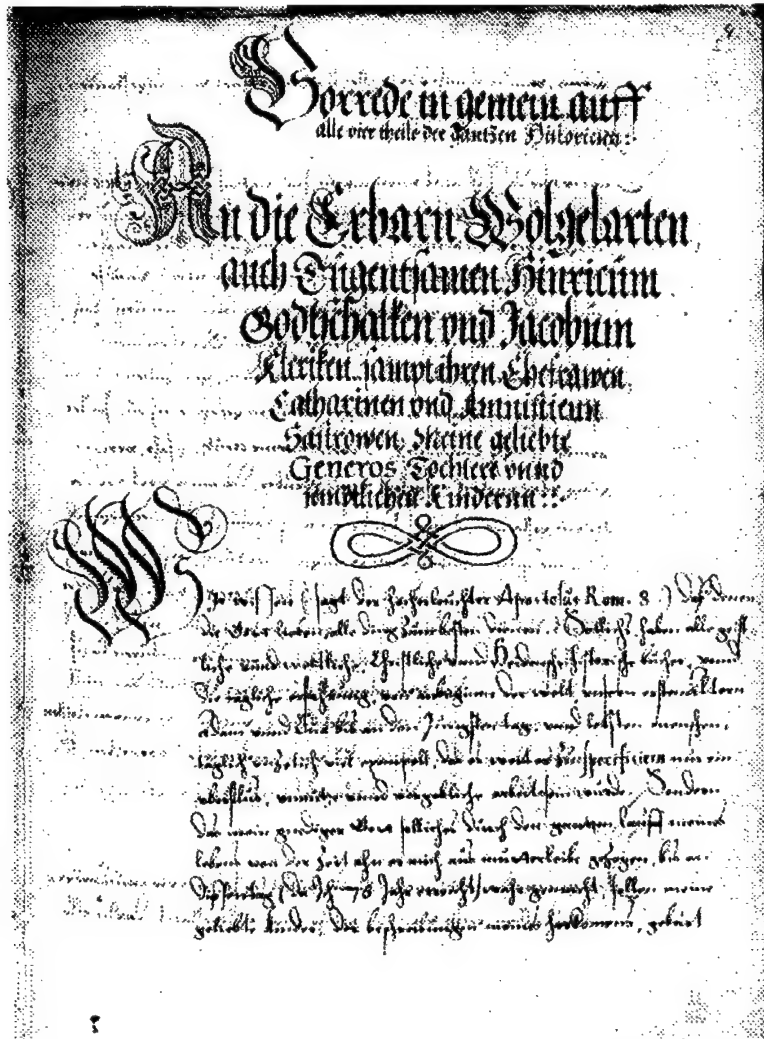 Vorrede in gemein auff
alle vier theile der Gantzen Historien:
An die Erbarn Wolgelarten
auch Tugentsamen Hinricum
Godtschalken vnd Jacobum
Kleriken sampt ihren Ehefrawen
Catharinen vnd Amnistien
Sastrowen Meine geliebte
Generos Töchtere vnnd
semptlichen Kindernn::
Wir wissen (sagt der hocherleuchter Apostolus Rom. 8.) das denen
die Gott lieben alle ding zum besten dienen. Sollichs haben alle geist
liche vnnd weltliche, Christliche vnnd Hednische historische bücher, vnnd
die tägliche erfahrung, von anbeginne der welt vnsern ersten ältern
Adam vnnd Eua bis an den Jungsten tag, vnd letsten menschen,
das es weiter zu specificiern nur ein
vberflus, vnnutze vnnd vergebliche arbeit sein wurde. Sondern
das mein gnediger Gott solliches durch den gantzen lauff meines
lebens von der Zeit ahn er mich aus mutterleibe gezogen, bis an
78 Jahr erreicht) wahr gemacht, sollen meine
geliebte kinder, die beschreibungen meines herkomens, geburt